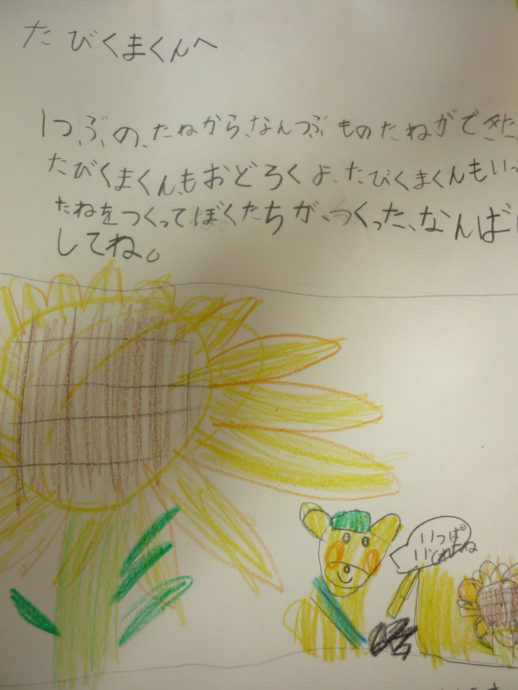 たびくまくんへ
1つぶの、たねから、なんつぶものたねができた
たびくまくんもおどろくよ、たびくまくんもいっ
たねをつくってぼくたちが、つくった、なんば
してね。
いっぱ